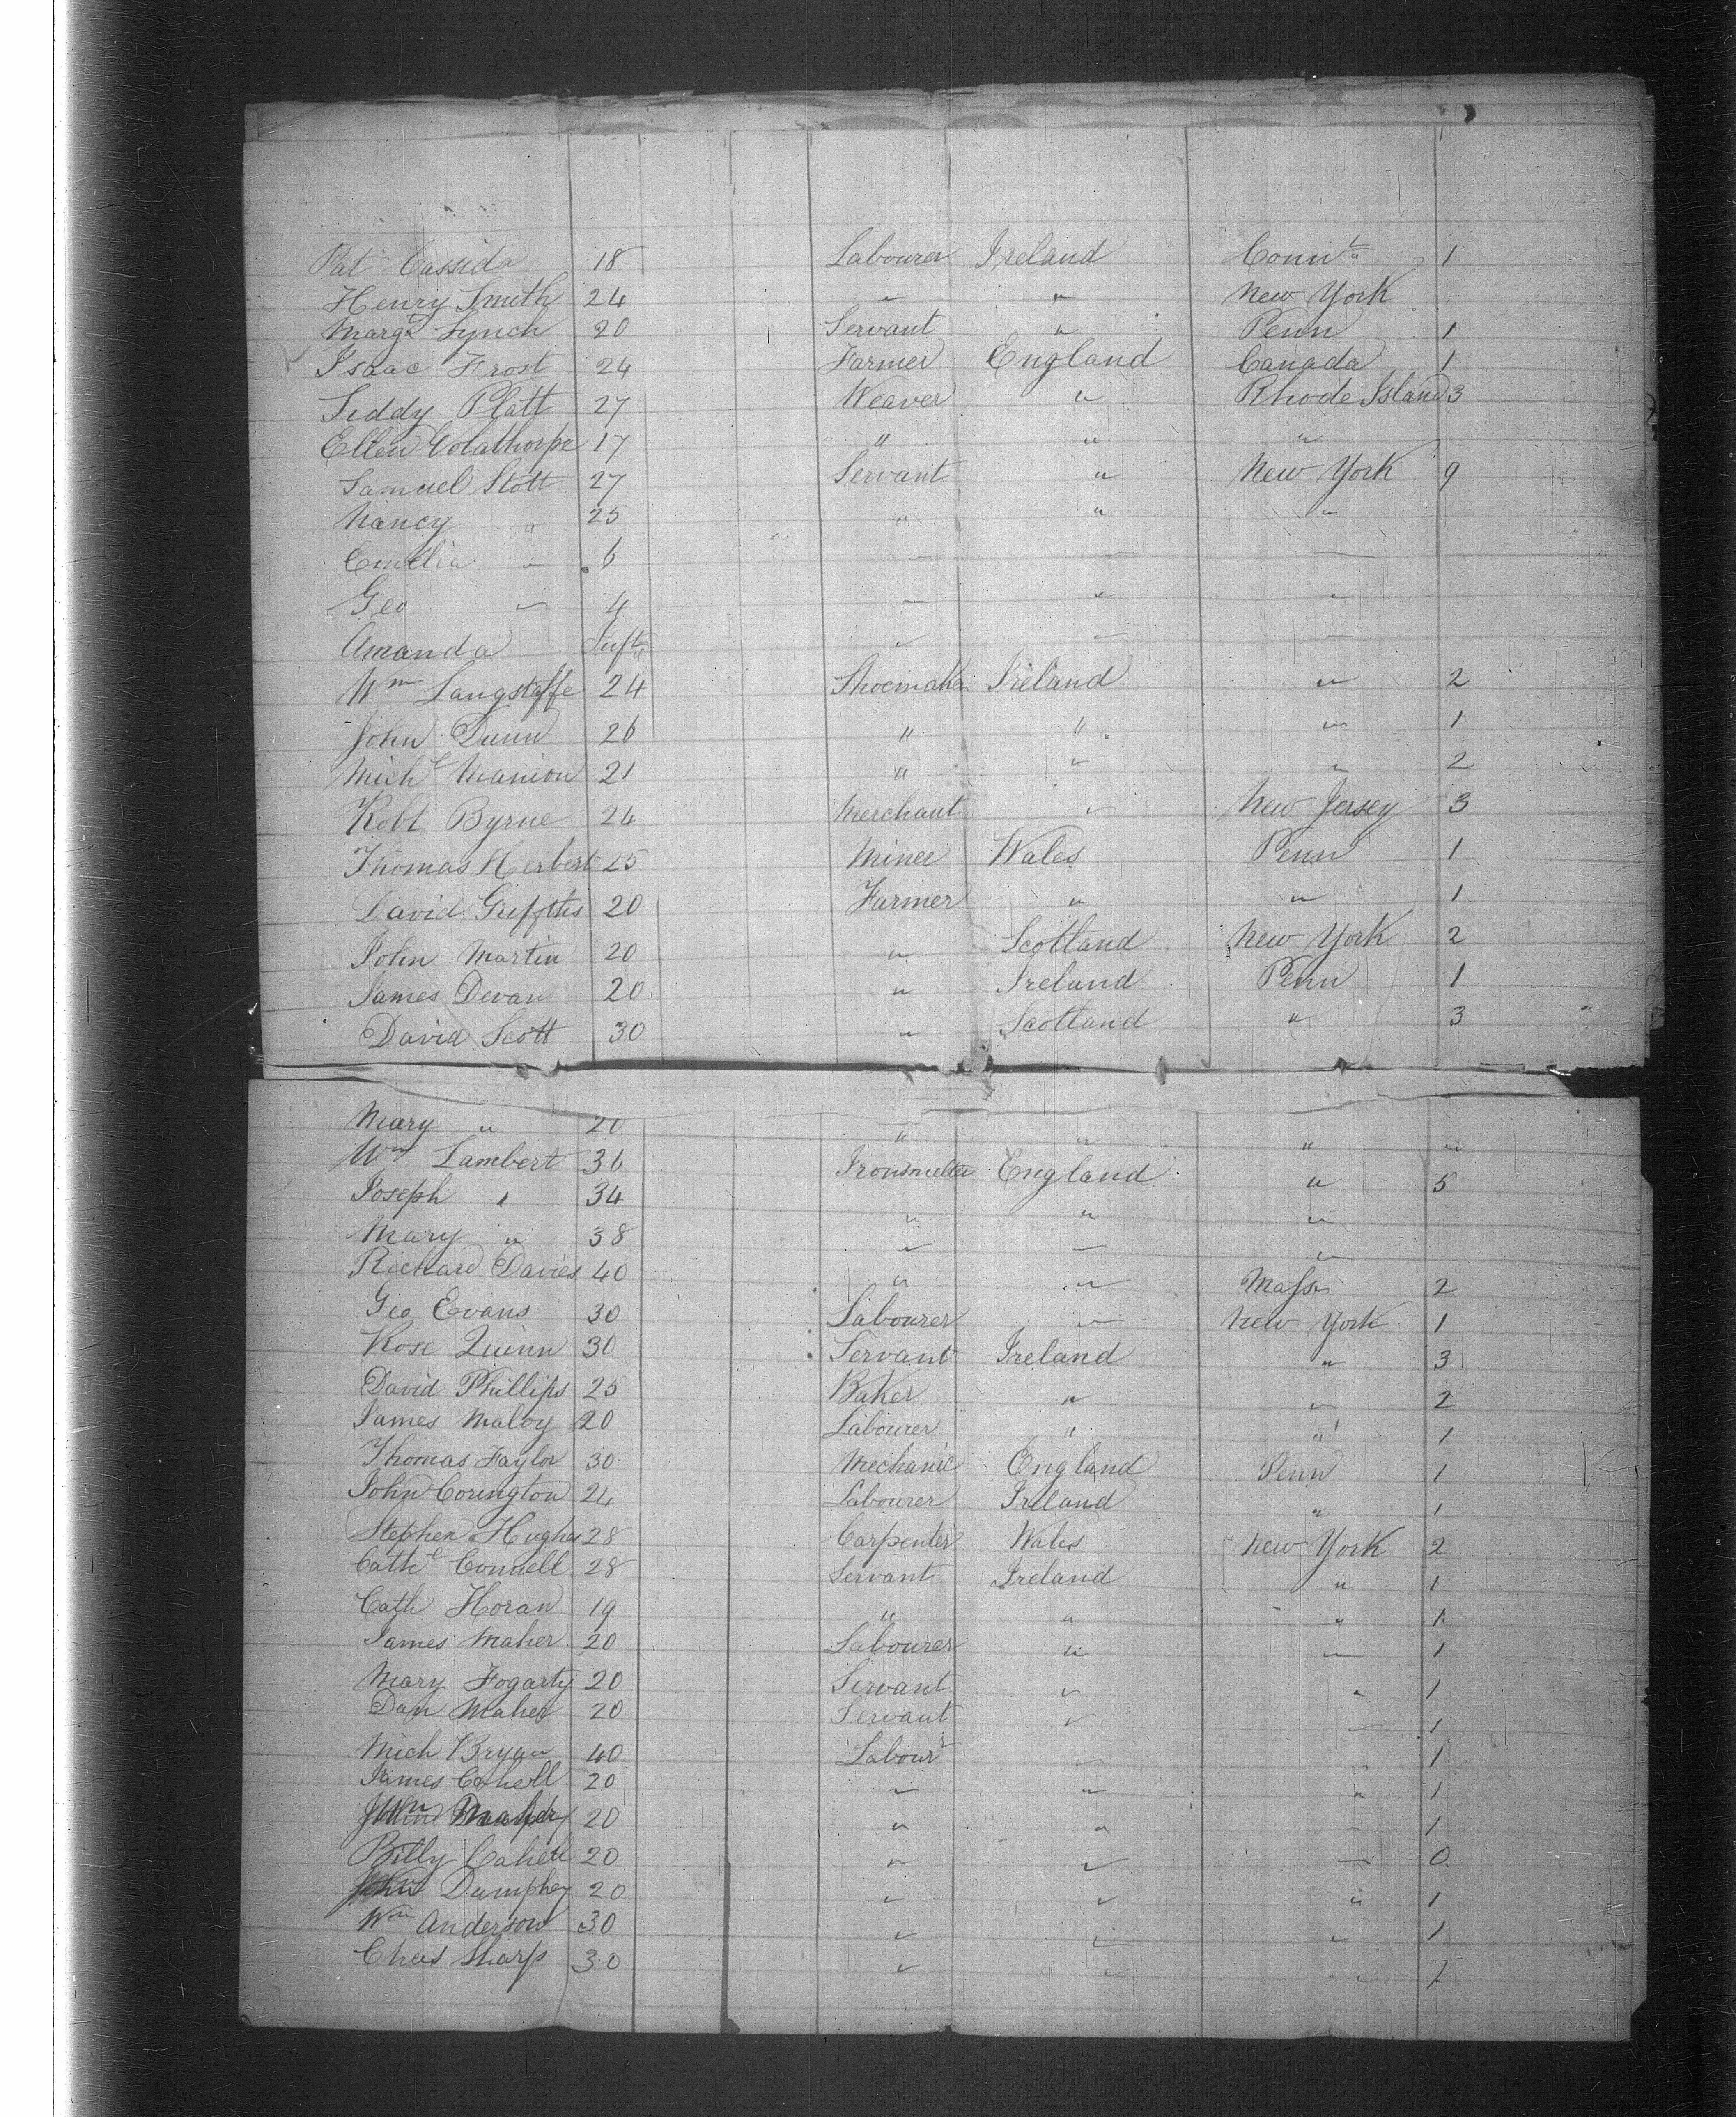 Pat Cassida 18 Labourer Ireland Connt 1
Henry Smith 24 " " New York
Margt Lynch 20 Servant " Penn 1
Isaac Frost 24 Farmer England Canada 1
Siddy Platt 27 Weaver " Rhode Island 3
Ellen Golathorpe 17 " " "
Samuel Stott 27 Servant " New York 9
Nancy " 25 " " "
Emelia " 6 " " "
Geo " 4 " " "
Amanda " " "
Wm Langstaffe 24 Shoemaker Ireland " 2
John Dunn 26 " " " 1
Michl Manion 21 " " " 2
Robt Byrne 24 Merchant " New Jersey 3
Thomas Herbert 25 Miner Wales Penn 1
David Griffths 20 Farmer " " 1
John Martin 20 " Scotland New York 2
James Devan 20 " Ireland Penn 1
David Scott 30 " Scotland " 3
Mary " 20 " " " "
Wm Lambert 36 Ironsmelter England " 5
Joseph " 34 " " "
Mary " 38 " " "
Richard Davies 40 " " Mass 2
Geo Evans 30 Labourer " New York 1
Rose Quinn 30 Servant Ireland " 3
David Phillips 25 Baker " " 2
James Maloy 20 Labourer " " 1
Thomas Taylor 30 Mechanic England Penn 1
John Corington 24 Labourer Ireland " 1
Stephen Hughes 28 Carpenter Wales New York 2
Cathe Connell 28 Servant Ireland " 1
Cath Horan 19 " " " 1
James Maher 20 Labourer " " 1
Mary Fogarty 20 Servant " " 1
Dan Maher 20 Servant " " 1
Mich Bryan 40 Labourr " " 1
James Cahell 20 " " " 1
20 " " " 1
Billy Cahill 20 " " " 0
Dumphey 20 " " " 1
Wm Anderson 30 " " " 1
Chas Sharp 30 " " " 1